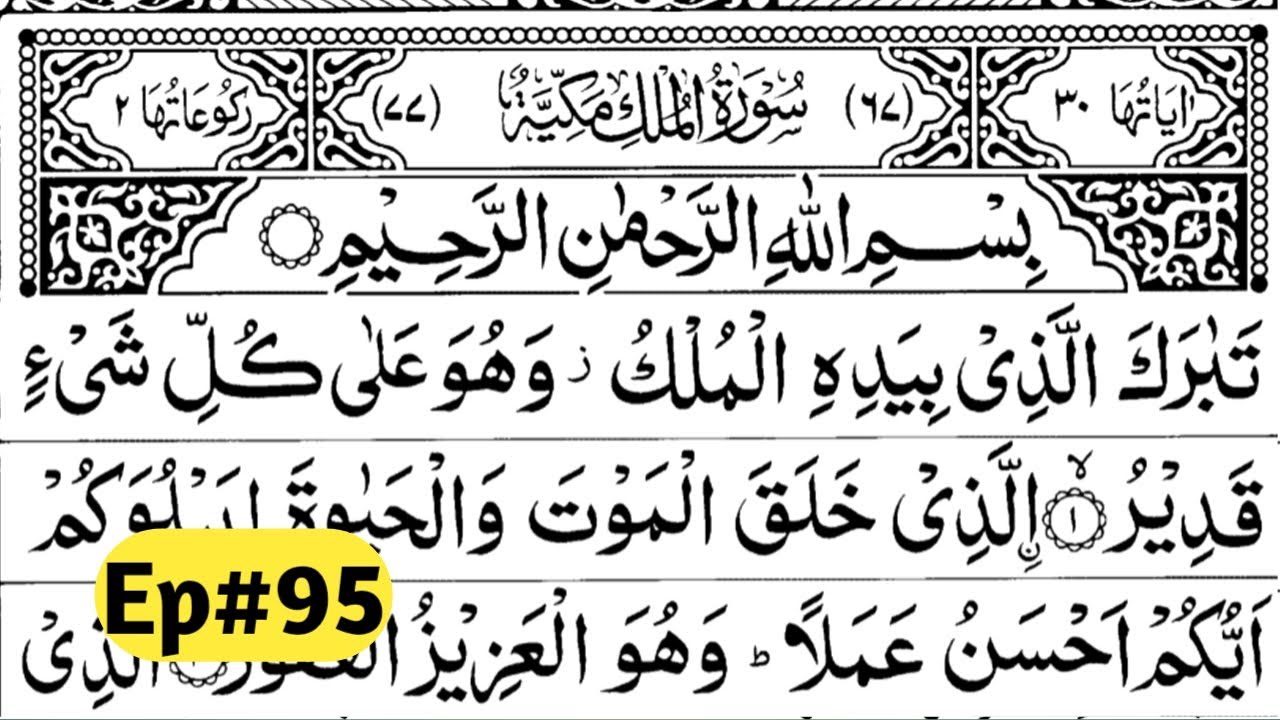 اٰيَاتُهَا ٣٠ (٦٧) سُوْرَةُ الْمُلْكِ مَكِّيَّةٌ (٧٧) رُكُوْعَاتُهَا ٢
بِسْمِ اللّٰهِ الرَّحْمٰنِ الرَّحِيْمِ
تَبٰرَكَ الَّذِىْ بِيَدِهِ الْمُلْكُ ز وَهُوَ عَلٰى كُلِّ شَىْءٍ
قَدِيْرُ ۙ﴿١﴾ اۨلَّذِىْ خَلَقَ الْمَوْتَ وَالْحَيٰوةَ لِيَبْلُوَكُمْ
اَيُّكُمْ اَحْسَنُ عَمَلًا ؕ وَهُوَ الْعَزِيْزُ الْغَفُوْرُ الَّذِىْ
Ep#95